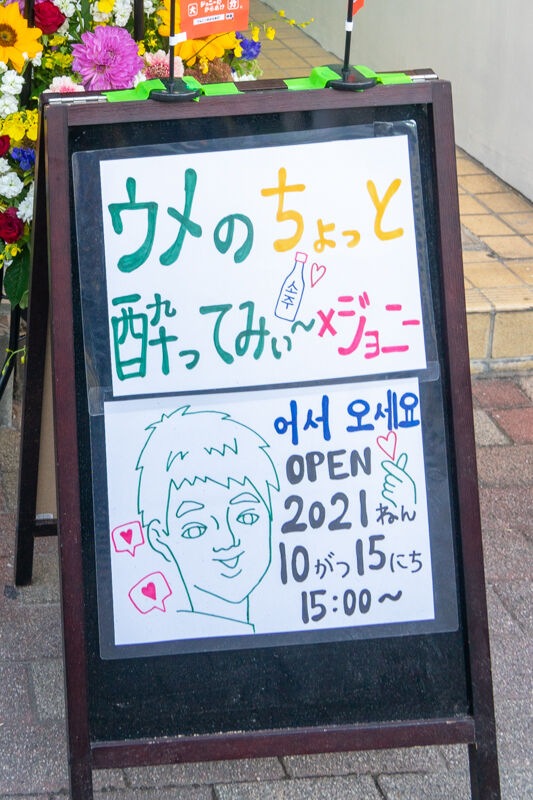 大分
ジョニーの
からあげ
ウメのちょっと
소주
酔ってみぃ〜×ジョニー
어서 오세요
OPEN
2021ねん
10がつ15にち
15:00〜